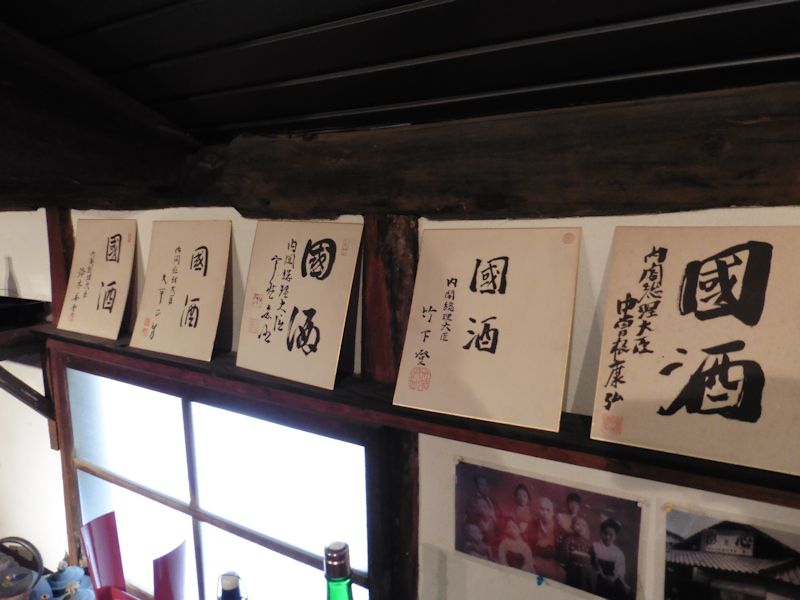 國酒
内閣総理大臣
鈴木善幸
國酒
内閣総理大臣
大平正芳
國酒
内閣総理大臣
宇野宗佑
國酒
内閣総理大臣
竹下登
國酒
内閣総理大臣
中曽根康弘